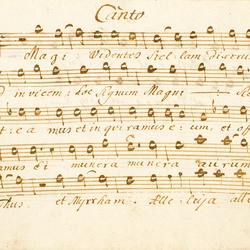 Canto
Magi: Videntes Stel lam dixerunt
d invicem: hoc Signum Magni
t: e a mus et in qui ramus e: um, et of
amus e i munera munera aurum
thus et Myrrham. Alle: luja alle